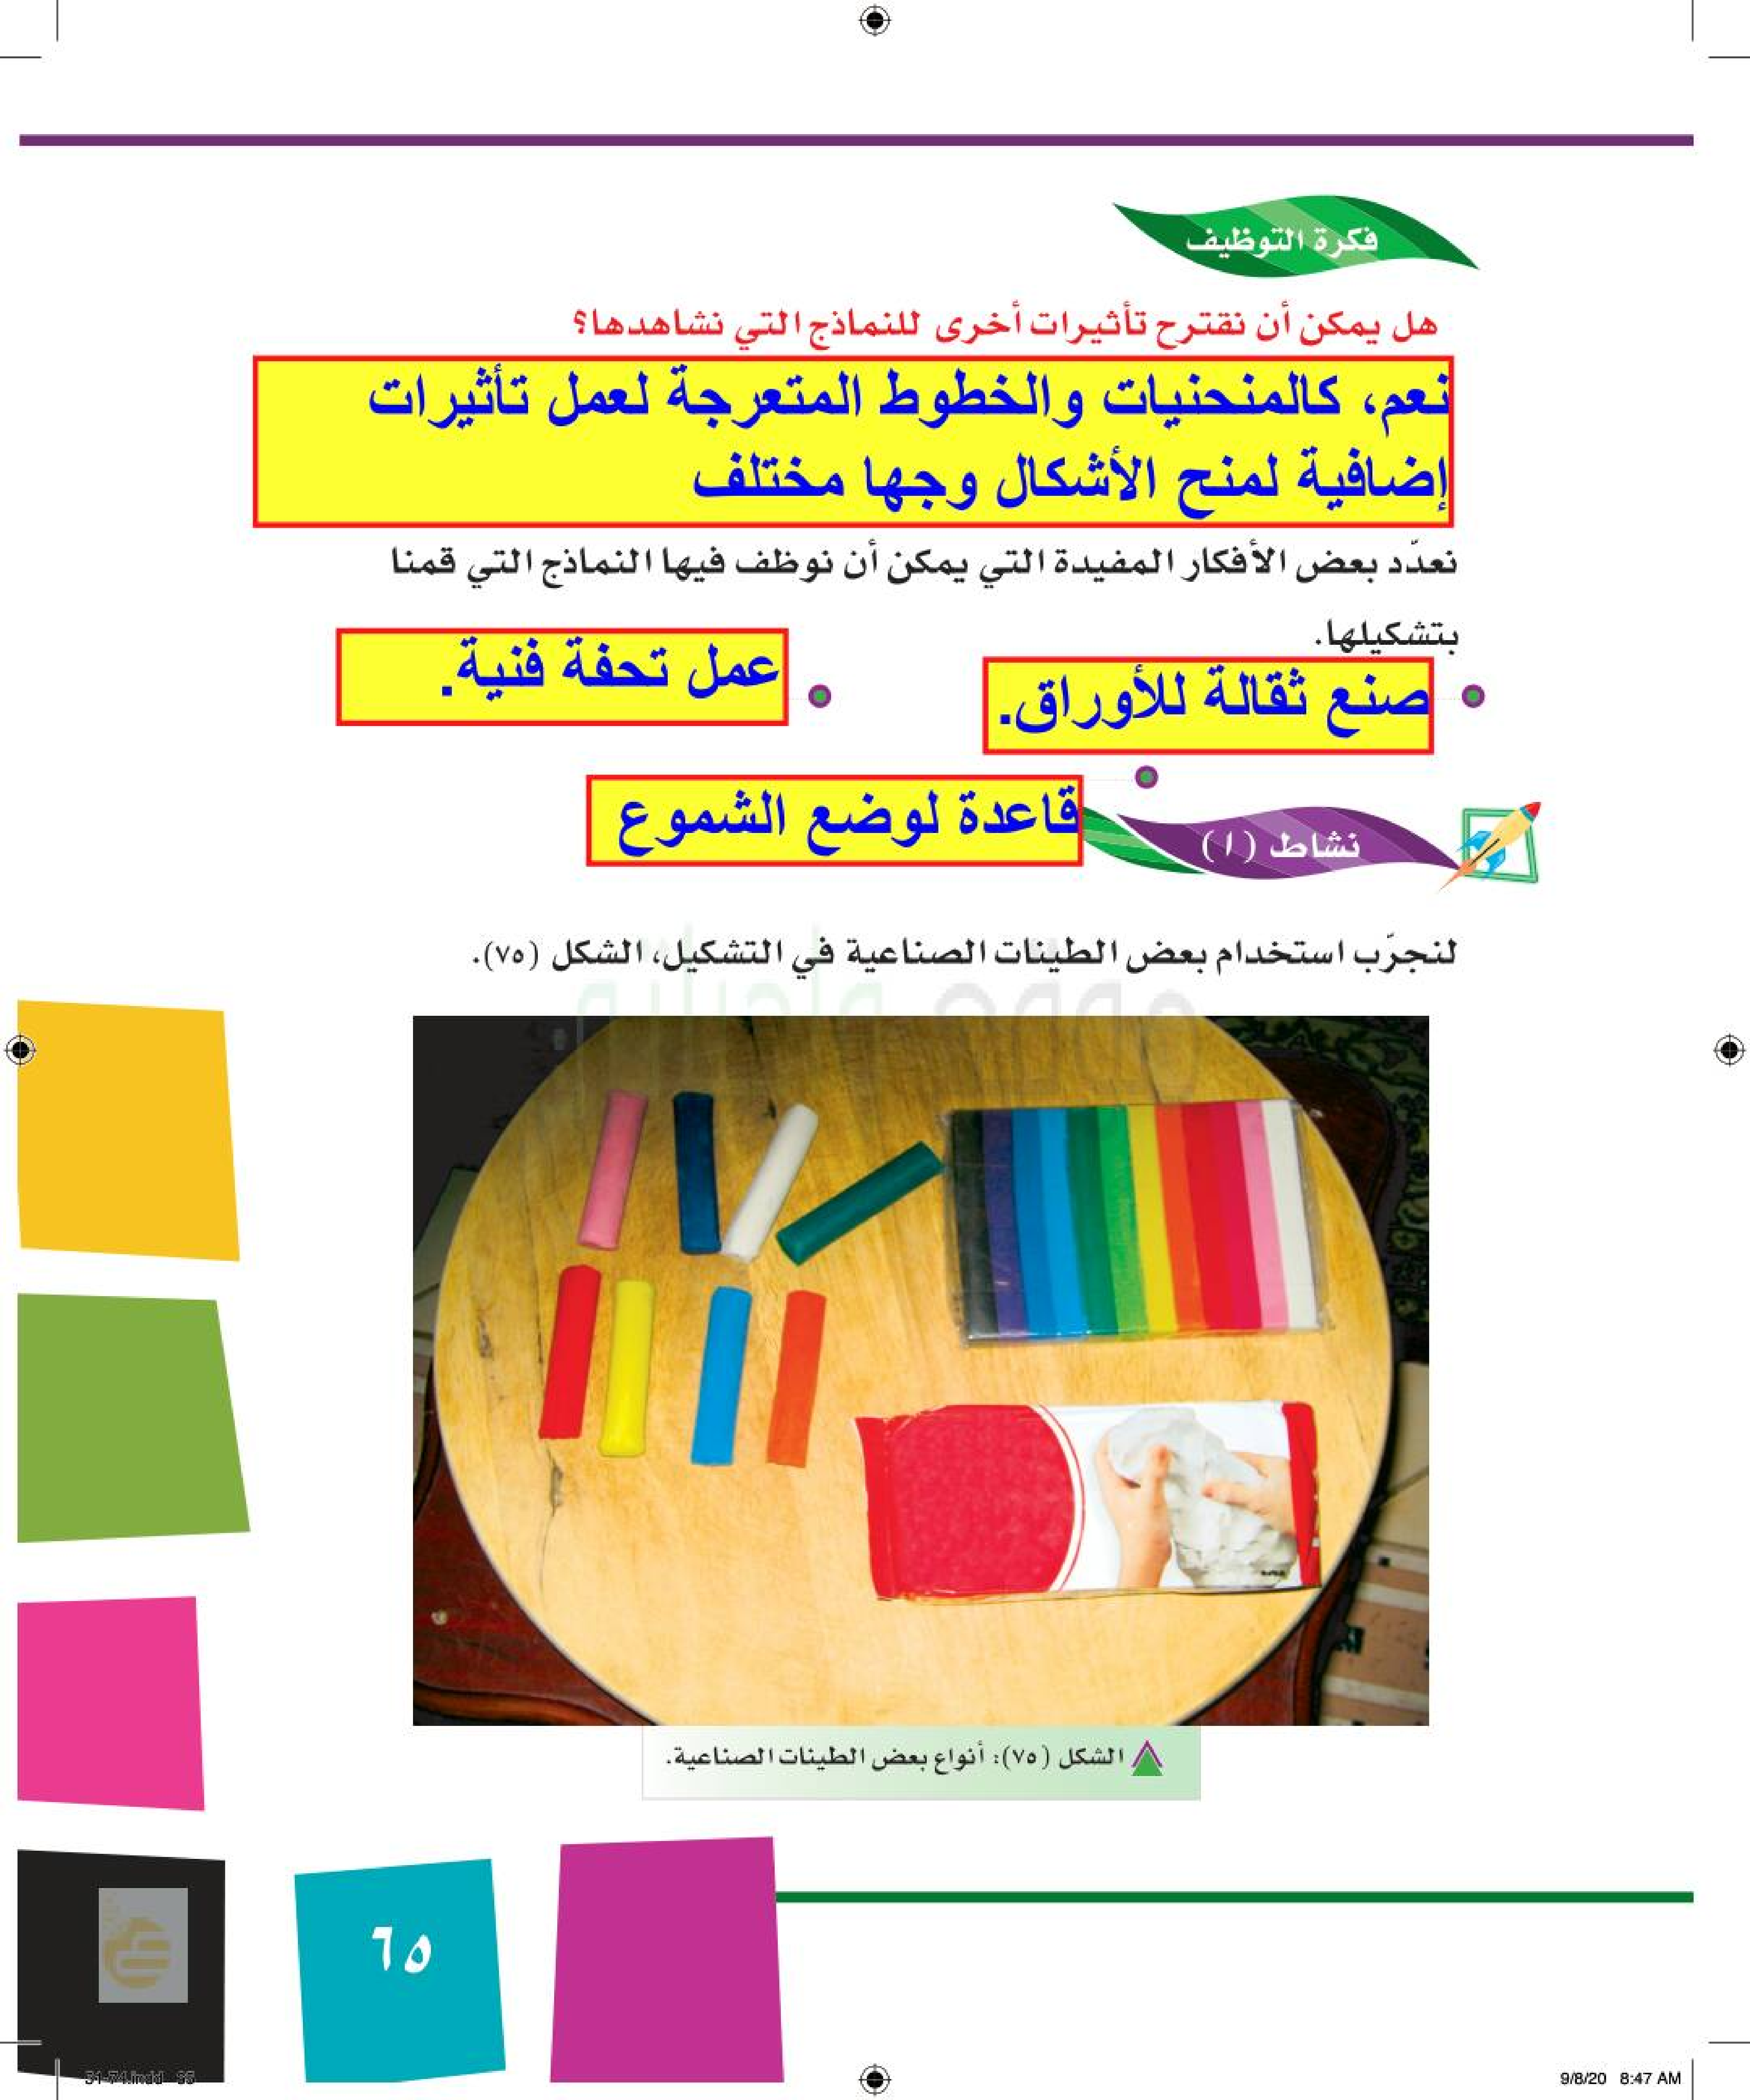 فكرة التوظيف
هل يمكن أن نقترح تأثيرات أخرى للنماذج التي نشاهدها؟
نعم، كالمنحنيات والخطوط المتعرجة لعمل تأثيرات
إضافية لمنح الأشكال وجها مختلف
نعدّد بعض الأفكار المفيدة التي يمكن أن نوظف فيها النماذج التي قمنا
بتشكيلها.
صنع ثقالة للأوراق.
عمل تحفة فنية.
قاعدة لوضع الشموع
نشاط (١)
لنجرّب استخدام بعض الطينات الصناعية في التشكيل، الشكل (٧٥).
الشكل (٧٥): أنواع بعض الطينات الصناعية.
٦٥
9/8/20 8:47 AM